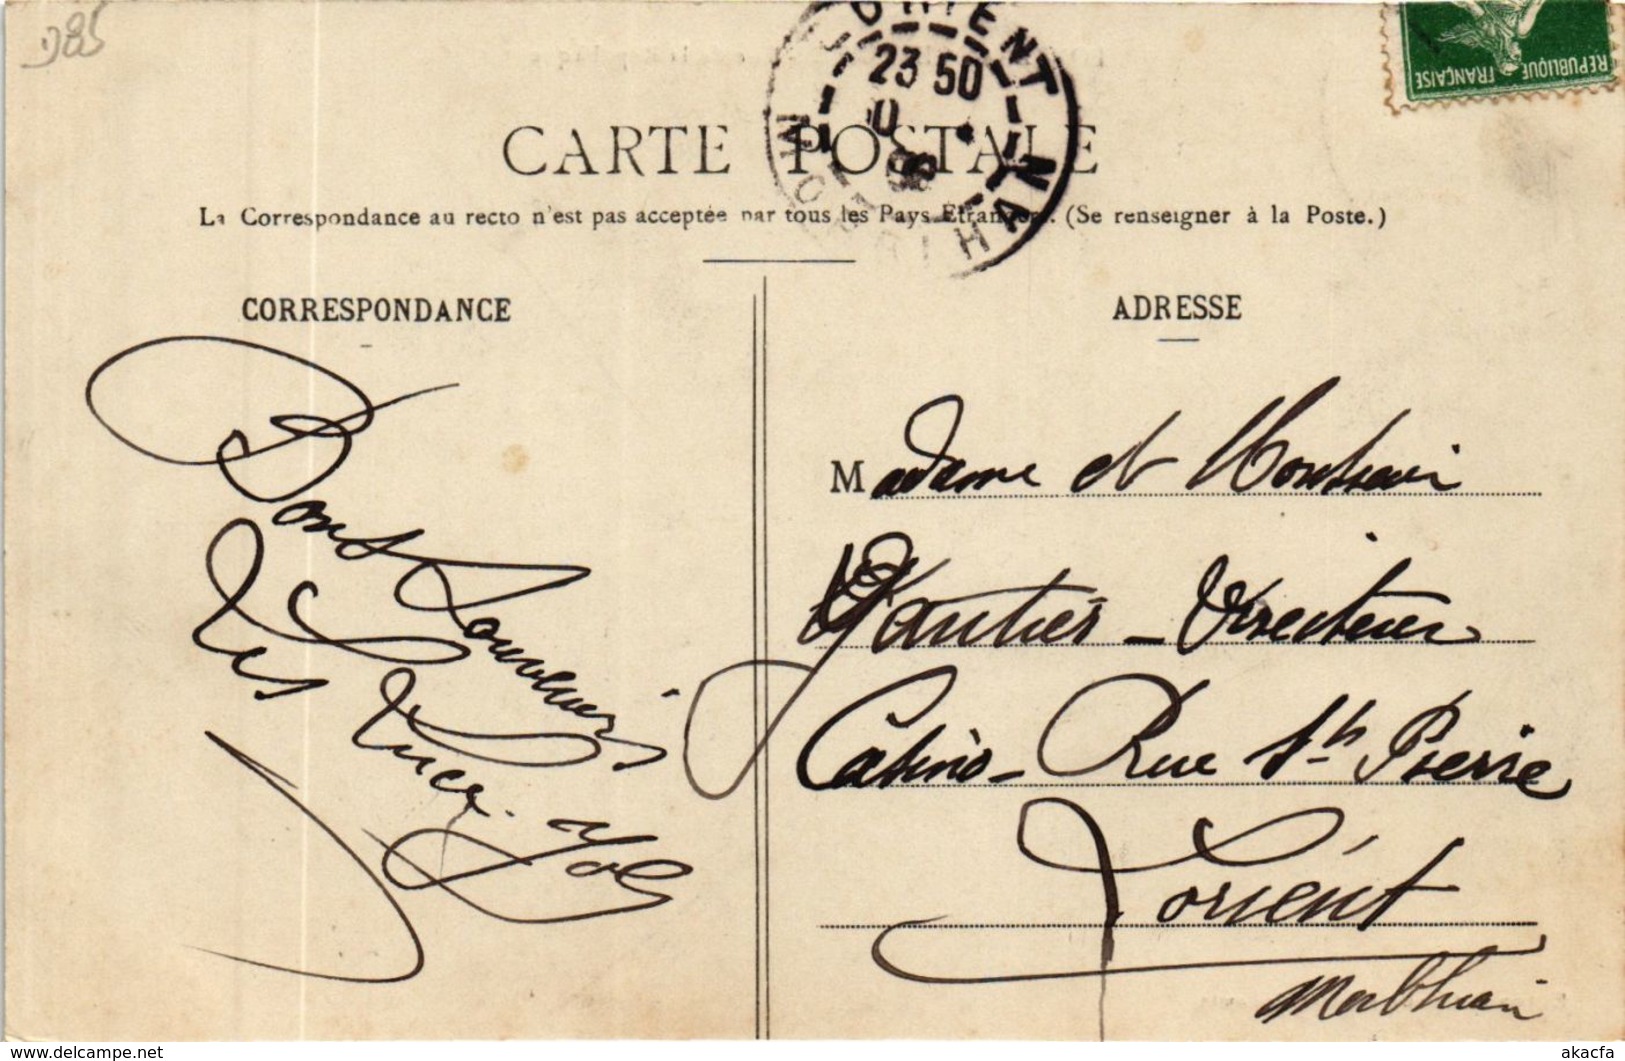 D85
LORIENT
23 50
MORBIHAN
REPUBLIQUE FRANÇAISE
CARTE POSTALE
La Correspondance au recto n'est pas acceptée par tous les Pays Etrangers. (Se renseigner à la Poste.)
CORRESPONDANCE
Bons Souvenirs
Les
ADRESSE
Madame et Monsieur
Gautier - Directeur
Casino - Rue St Pierre
Lorient
Morbihan
akacfa